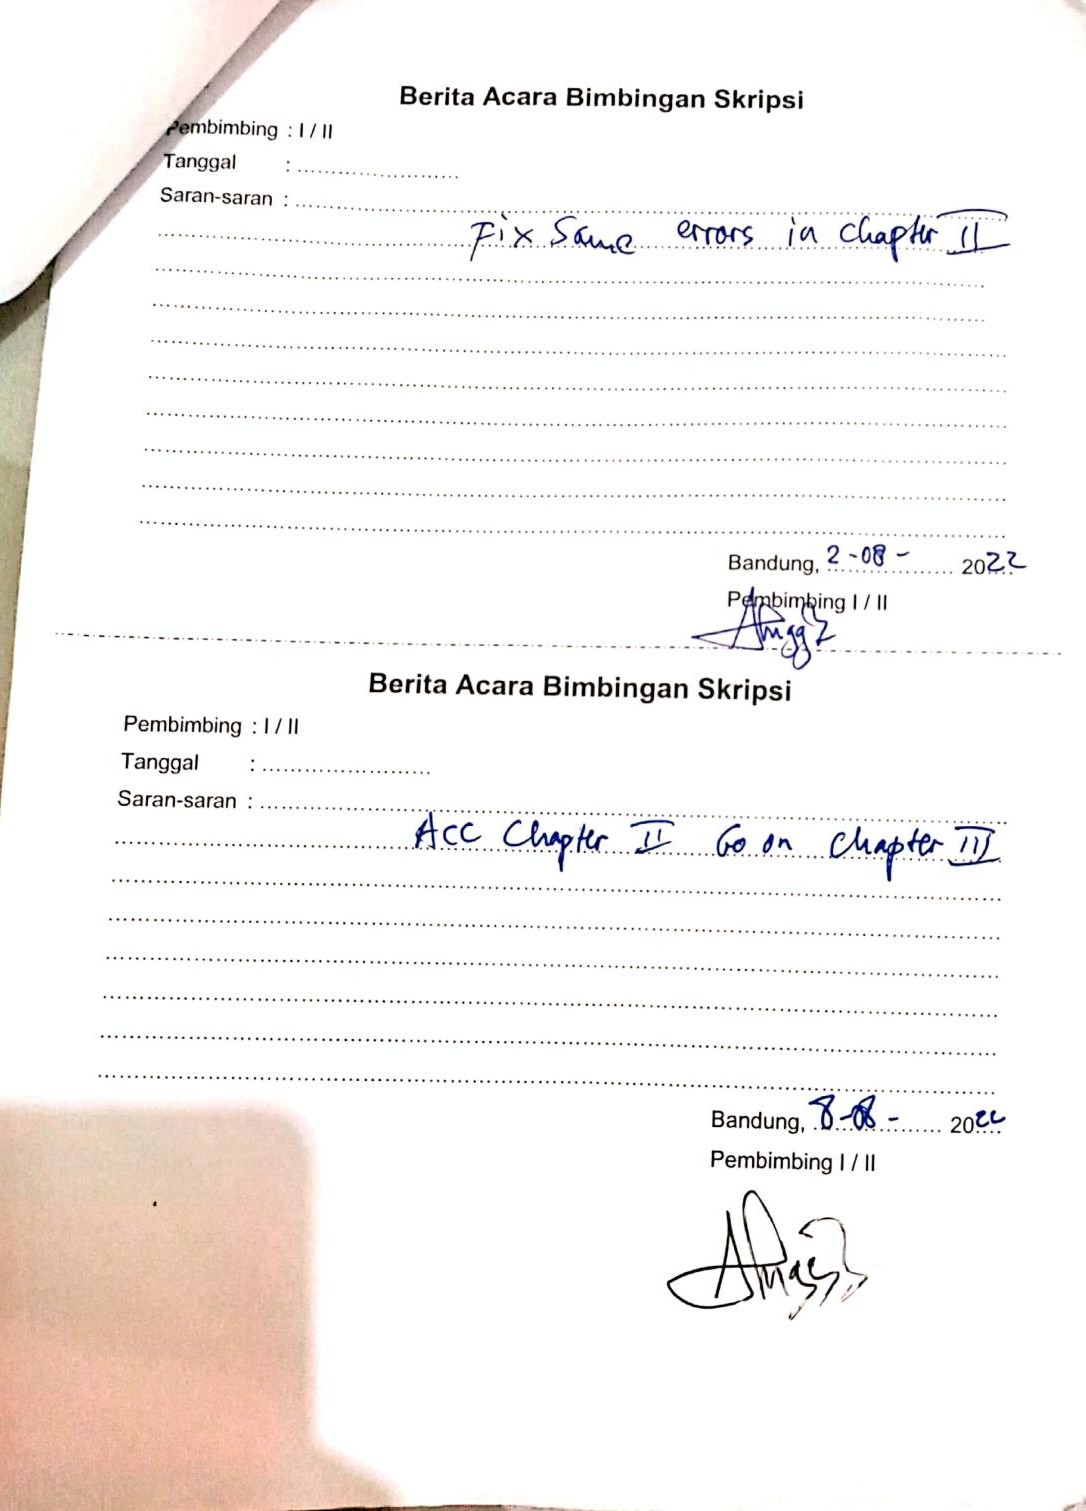 Berita Acara Bimbingan Skripsi
Pembimbing : I / II
Tanggal : ........................
Saran-saran : ........................
Fix Same errors in chapter II
Bandung, 2-08- 2022
Pembimbing I / II
Berita Acara Bimbingan Skripsi
Pembimbing : I / II
Tanggal : ........................
Saran-saran : ........................
Acc Chapter II Go on Chapter III
Bandung, 8-08- 2022
Pembimbing I / II